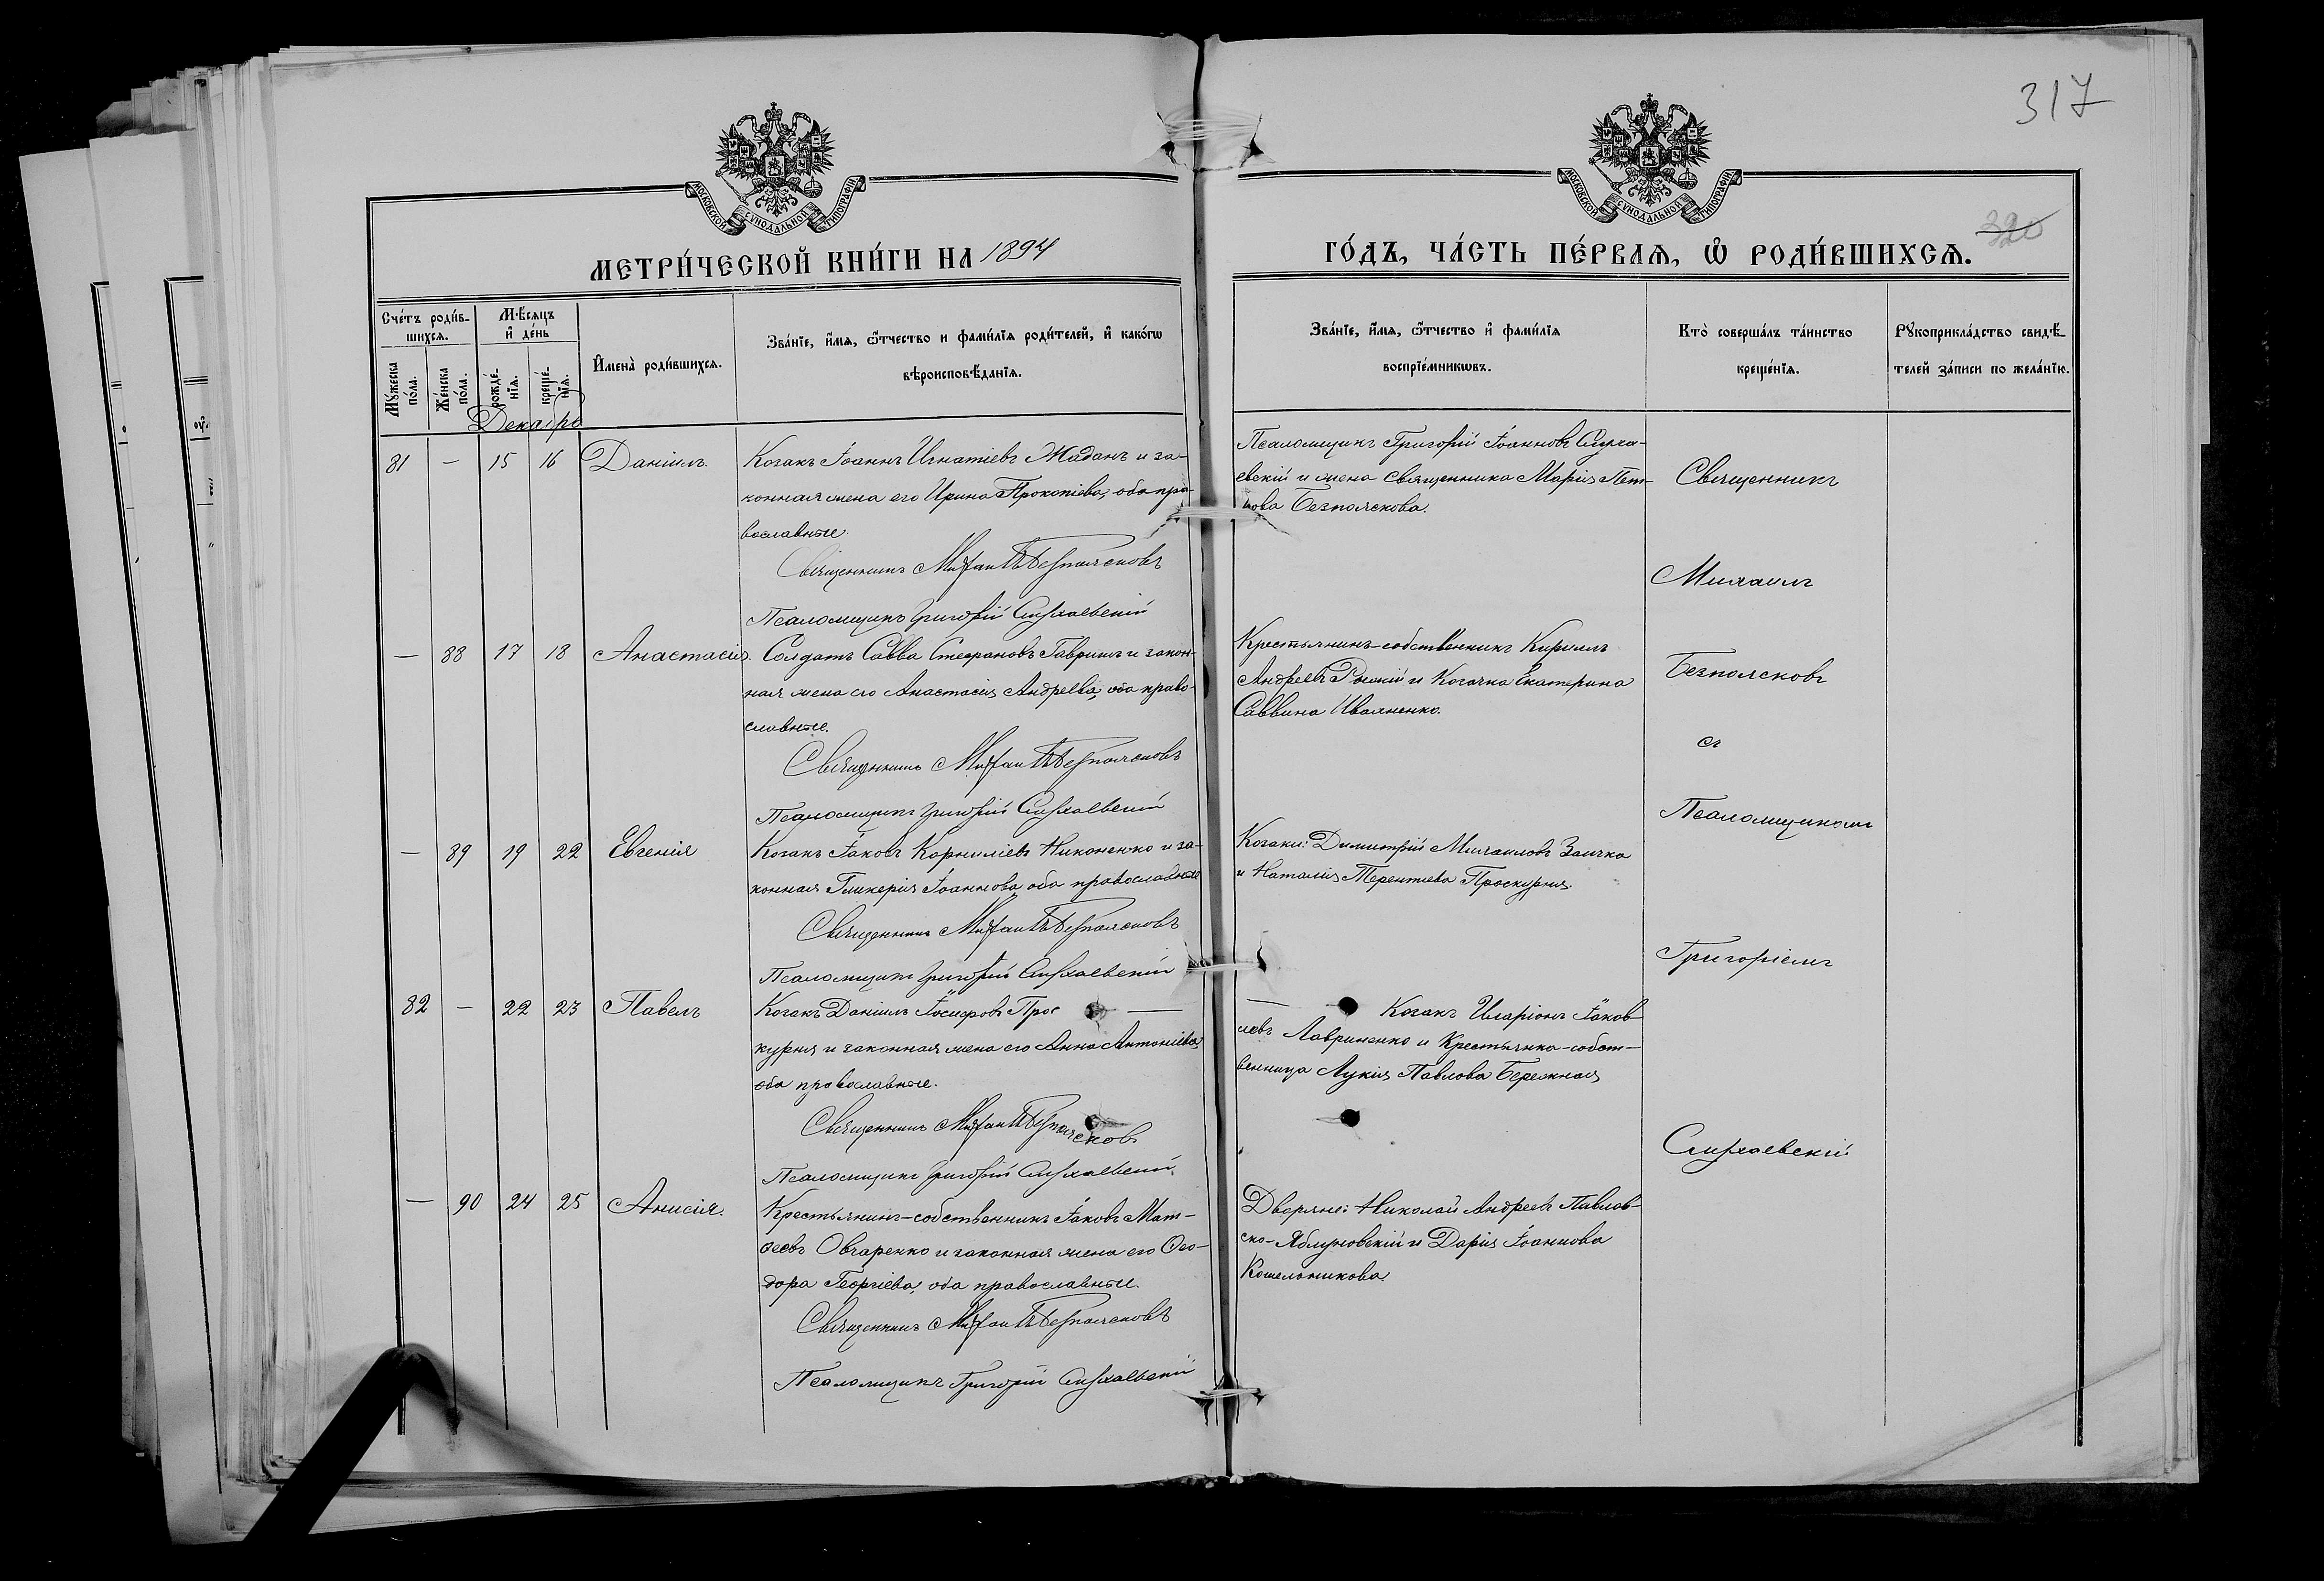 317
МОСКОВСКОЙ СѴНОДАЛЬНОЙ ТИПОГРАФІИ
МОСКОВСКОЙ СѴНОДАЛЬНОЙ ТИПОГРАФІИ
320
МЕТРИ́ЧЕСКОЙ КНИ́ГИ НА 1894
ГО́ДЪ, ЧА́СТЬ ПЕ́РВАѦ, Ѡ҆ РОДИ́ВШИХСѦ.
Сче́тъ роди́в-
шихся.
Мꙋ́жеска по́ла.
Же́нска по́ла.
Мѣ́сяцъ и҆ де́нь
рожде́-
нїѧ.
креще́-
нїѧ.
И҆мена̀ роди́вшихсѧ.
Зва́нїе, и҆́мѧ, ѻ҆́тчество и фами́лїѧ роди́телей, и҆ како́гѡ
вѣроисповѣ́данїѧ.
Зва́нїе, и҆́мѧ, ѻ҆́тчество и҆ фами́лїѧ
воспрїе́мникѡвъ.
Кто̀ соверша́лъ та́инство
креще́нїѧ.
Рꙋкоприкла́дство свидѣ́-
телей за́писи по жела́нїю.
Декабрь
81 — 15 16 Даніилъ.
Козакъ Іоаннъ Игнатіевъ Жаданъ и за-
конная жена его Ирина Прокопіева, оба пра-
вославные.
Священникъ Михаилъ Безполсковъ
Псаломщикъ Григорій Слухаевскій
Псаломщикъ Григорій Іоанновъ Слуха-
евскій и жена священника Марія Пет-
рова Безполскова.
— 88 17 18 Анастасія.
Солдатъ Савва Стефановъ Гавришъ и закон-
ная жена его Анастасія Андреева, оба право-
славные.
Священникъ Михаилъ Безполсковъ
Псаломщикъ Григорій Слухаевскій
Крестьянинъ-собственникъ Кириллъ
Андреевъ и Козачка Екатерина
Саввина Иваненко.
— 89 19 22 Евгенія
Козакъ Іаковъ Корниліевъ Никоненко и за-
конная Гликерія Іоаннова оба православные
Священникъ Михаилъ Безполсковъ
Псаломщикъ Григорій Слухаевскій
Козаки: Димитрій Михаиловъ Заичко
и Наталія Терентіева Проскурня.
82 — 22 23 Павелъ
Козакъ Даніилъ Іосифовъ Прос —
курня и законная жена его Анна Антоніева,
оба православные.
Священникъ Михаилъ Безполсковъ
Псаломщикъ Григорій Слухаевскій
— Козакъ Иларіонъ Іаков
левъ Лавриненко и Крестьянка-собст-
венница Лукія Павлова Бережная
— 90 24 25 Анисія.
Крестьянинъ-собственникъ Іаковъ Мат-
ѳеевъ Овчаренко и законная жена его Ѳео-
дора Георгіева, оба православные.
Священникъ Михаилъ Безполсковъ
Псаломщикъ Григорій Слухаевскій
Дворяне: Николай Андреевъ Павлов-
ско-Яблуновскій и Дарія Іоаннова
Кошельникова.
Священникъ
Михаилъ
Безполсковъ
съ
Псаломщикомъ
Григоріемъ
Слухаевскій